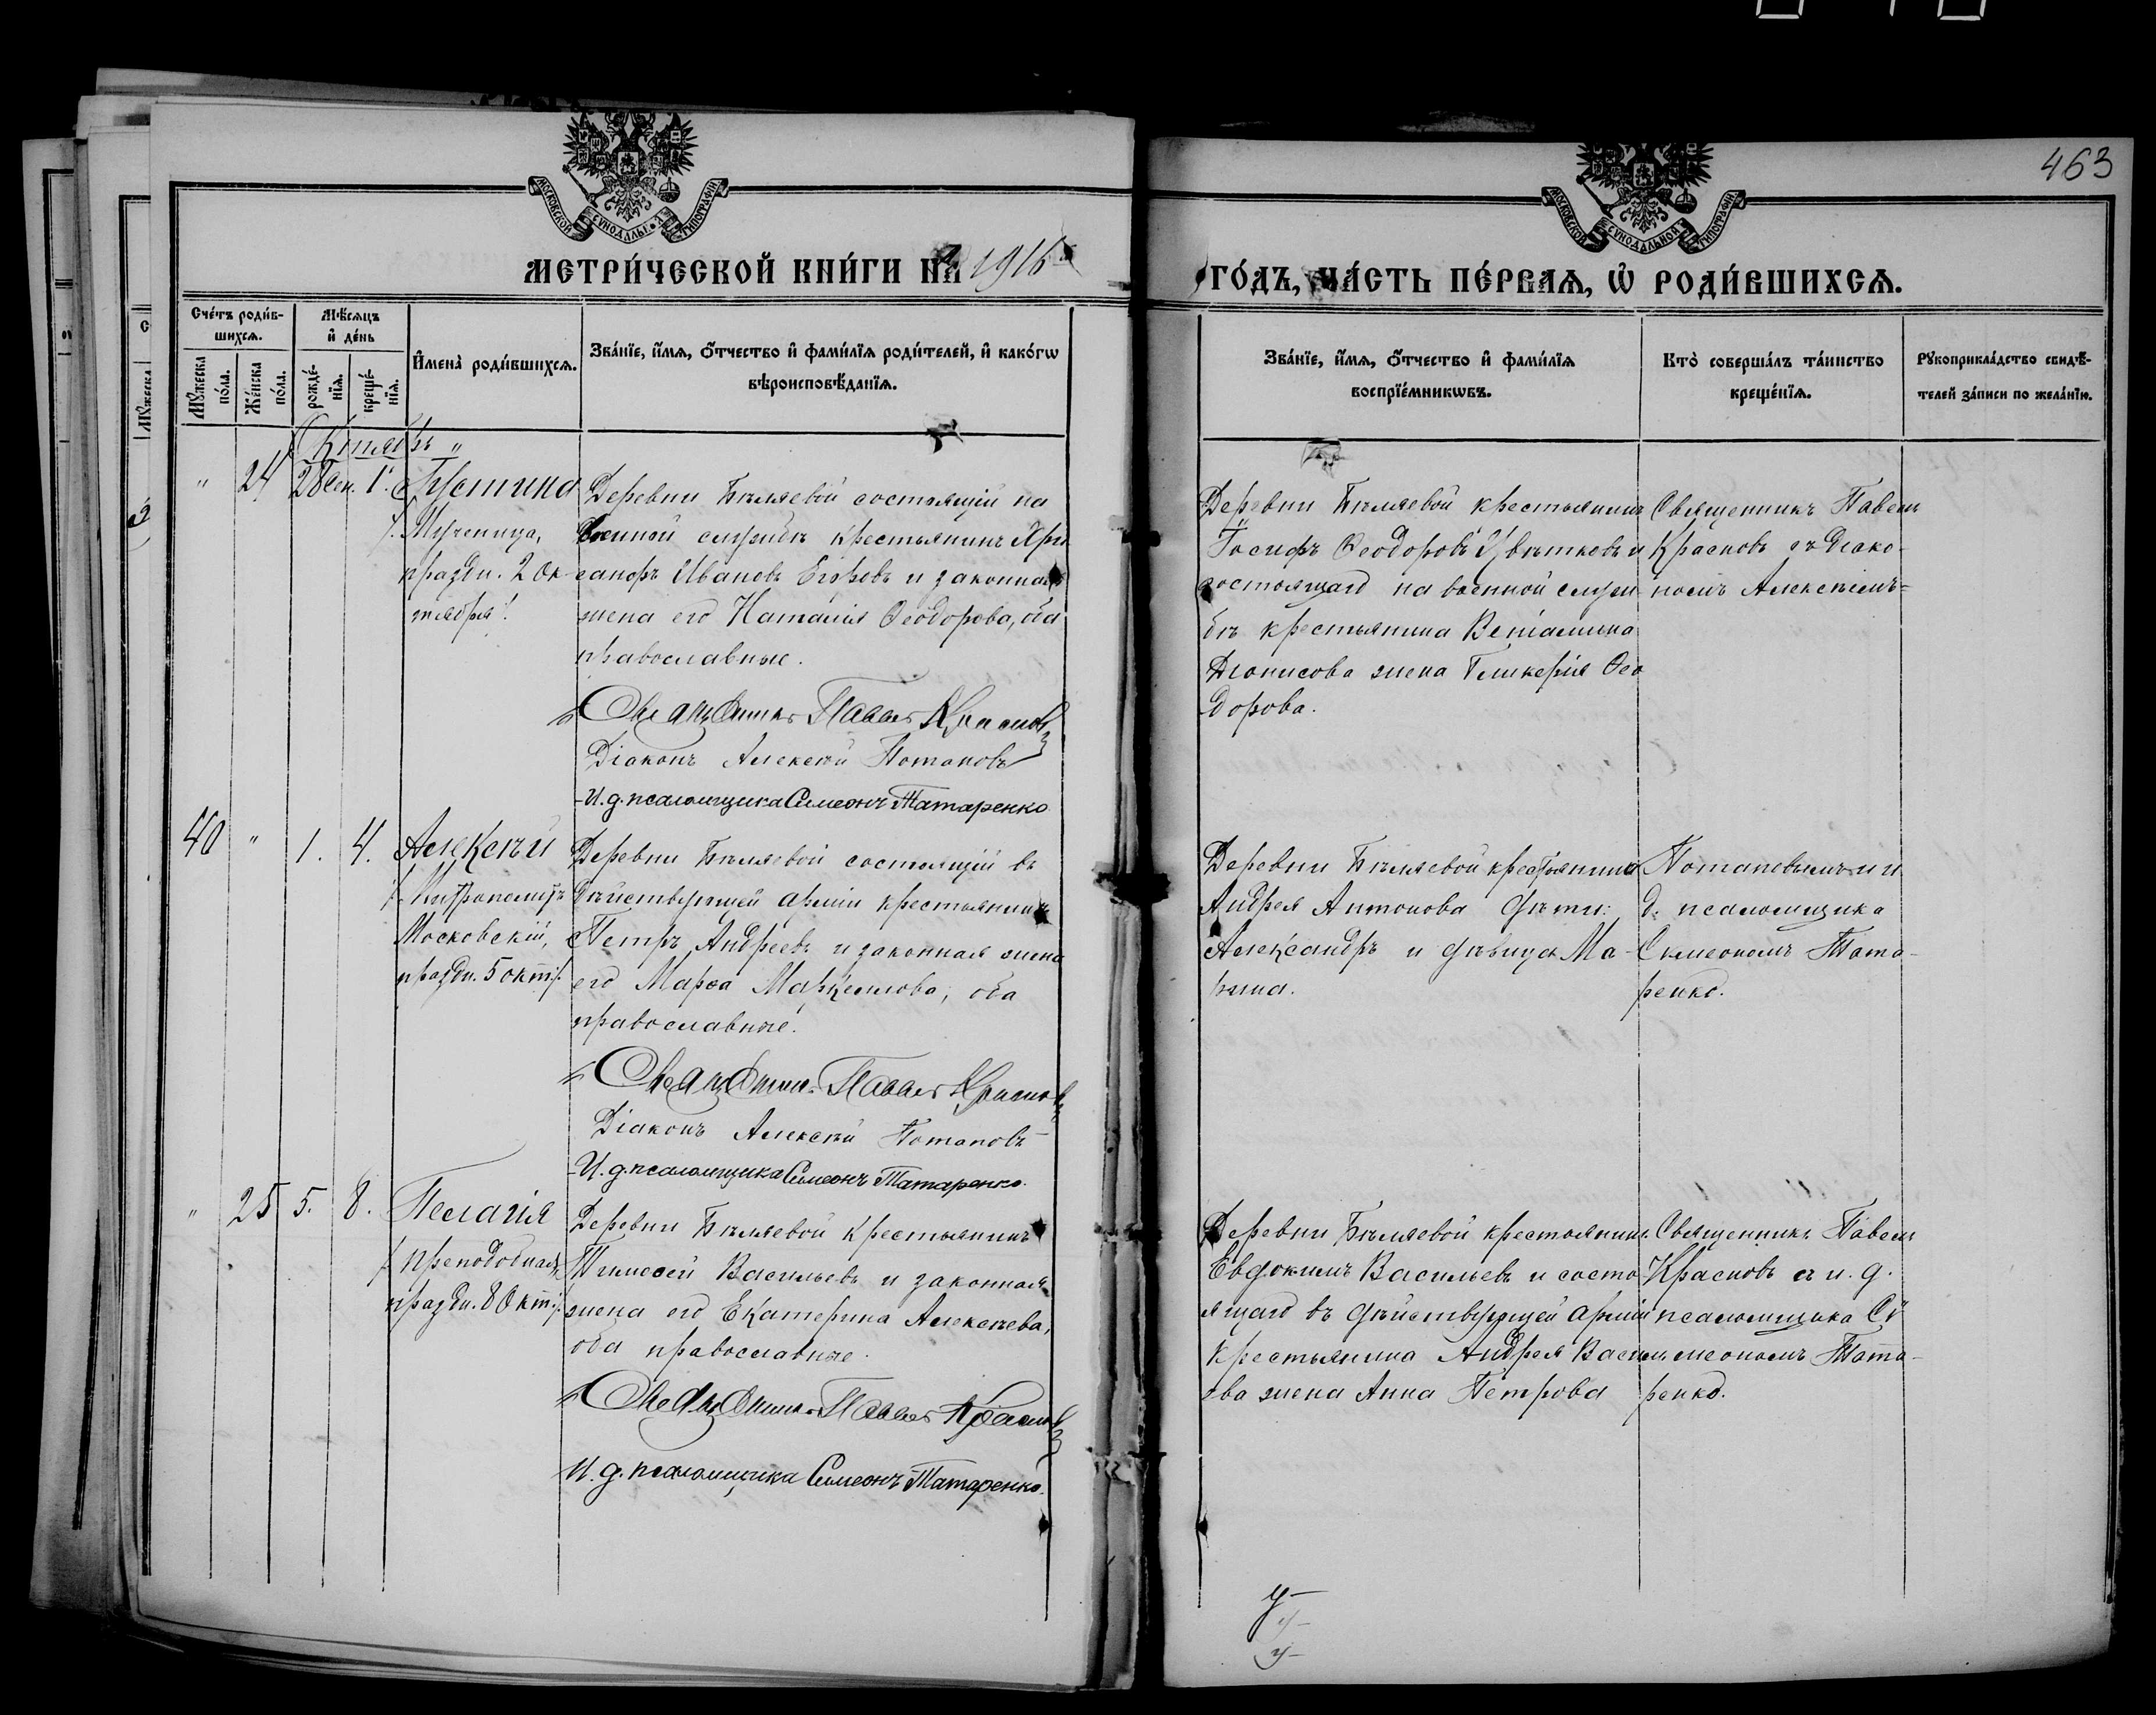 463
МОСКОВСКОЙ СѴНОДАЛЬНОЙ ТИПОГРАФІИ
МОСКОВСКОЙ СѴНОДАЛЬНОЙ ТИПОГРАФІИ
МЕТРИ́ЧЕСКОЙ КНИ́ГИ НА 1916
ГО́ДЪ, ЧА́СТЬ ПЕ́РВАѦ, Ѡ҆ РОДИ́ВШИХСѦ.
Сче́тъ роди́в-
шихсѧ.
Мꙋ́жеска по́ла.
Же́нска по́ла.
Мѣ́сѧцъ
и҆ де́нь
рожде́-
нїѧ.
креще́-
нїѧ.
И҆мена̀ роди́вшихсѧ.
Зва́нїе, и҆́мѧ, ѻ҆́тчество и҆ фами́лїѧ роди́телей, и҆ како́гѡ
вѣроисповѣ́данїѧ.
Зва́нїе, и҆́мѧ, ѻ҆́тчество и҆ фами́лїѧ
воспрїе́мникѡвъ.
Кто̀ соверша́лъ та́инство
креще́нїѧ.
Рꙋкоприкла́дство свидѣ́-
телей за́писи по жела́нїю.
Октябрь "
" 24 28 Сен. 1. Іустина
/. Мученица,
праздн. 2 Ок-
тября/.
Деревни Бѣляевой состоящій на
военной службѣ крестьянинъ Хри
санфъ Ивановъ Егоровъ и законная
жена его Наталія Ѳеодорова, оба
православные.
Священникъ Павелъ Красновъ
Діаконъ Алексѣй Потаповъ
И. д. псаломщика Симеонъ Татаренко
Деревни Бѣляевой крестьянинъ
Іосифъ Ѳеодоровъ Цвѣтковъ и
состоящаго на военной служ-
бѣ крестьянина Веніамина
Діонисова жена Гликерія Ѳео
дорова.
Священникъ Павелъ
Красновъ съ діако-
номъ Алексѣемъ-
40 " 1. 4. Алексѣй
/. Митрополитъ
Московскій,
праздн. 5 окт./.
Деревни Бѣляевой состоящій въ
дѣйствующей арміи крестьянинъ
Петръ Андреевъ и законная жена
его Марѳа Маркеллова, оба
православные.
Священник Павелъ Красновъ
Діаконъ Алексѣй Потаповъ
И. д. псаломщика Симеонъ Татаренко.
Деревни Бѣляевой крестьянина
Андрея Антонова дѣти:
Александръ и дѣвица Ма-
рина.
Потаповымъ и и
д. псаломщика
Симеономъ Тата-
ренко.
" 25 5. 8. Пелагія
/. преподобная,
праздн. 8 Окт./.
Деревни Бѣляевой крестьянинъ
Тимоѳей Васильевъ и законная
жена его Екатерина Алексѣева,
оба православные.
Священник Павелъ Красновъ
И. д. псаломщика Симеонъ Татаренко.
Деревни Бѣляевой крестьянинъ
Евдокимъ Васильевъ и состо-
ящаго въ дѣйствующей арміи
крестьянина Андрея Василь
ева жена Анна Петрова
Священникъ Павелъ
Красновъ съ и. д.
псаломщика Си
меономъ Тата-
ренко.